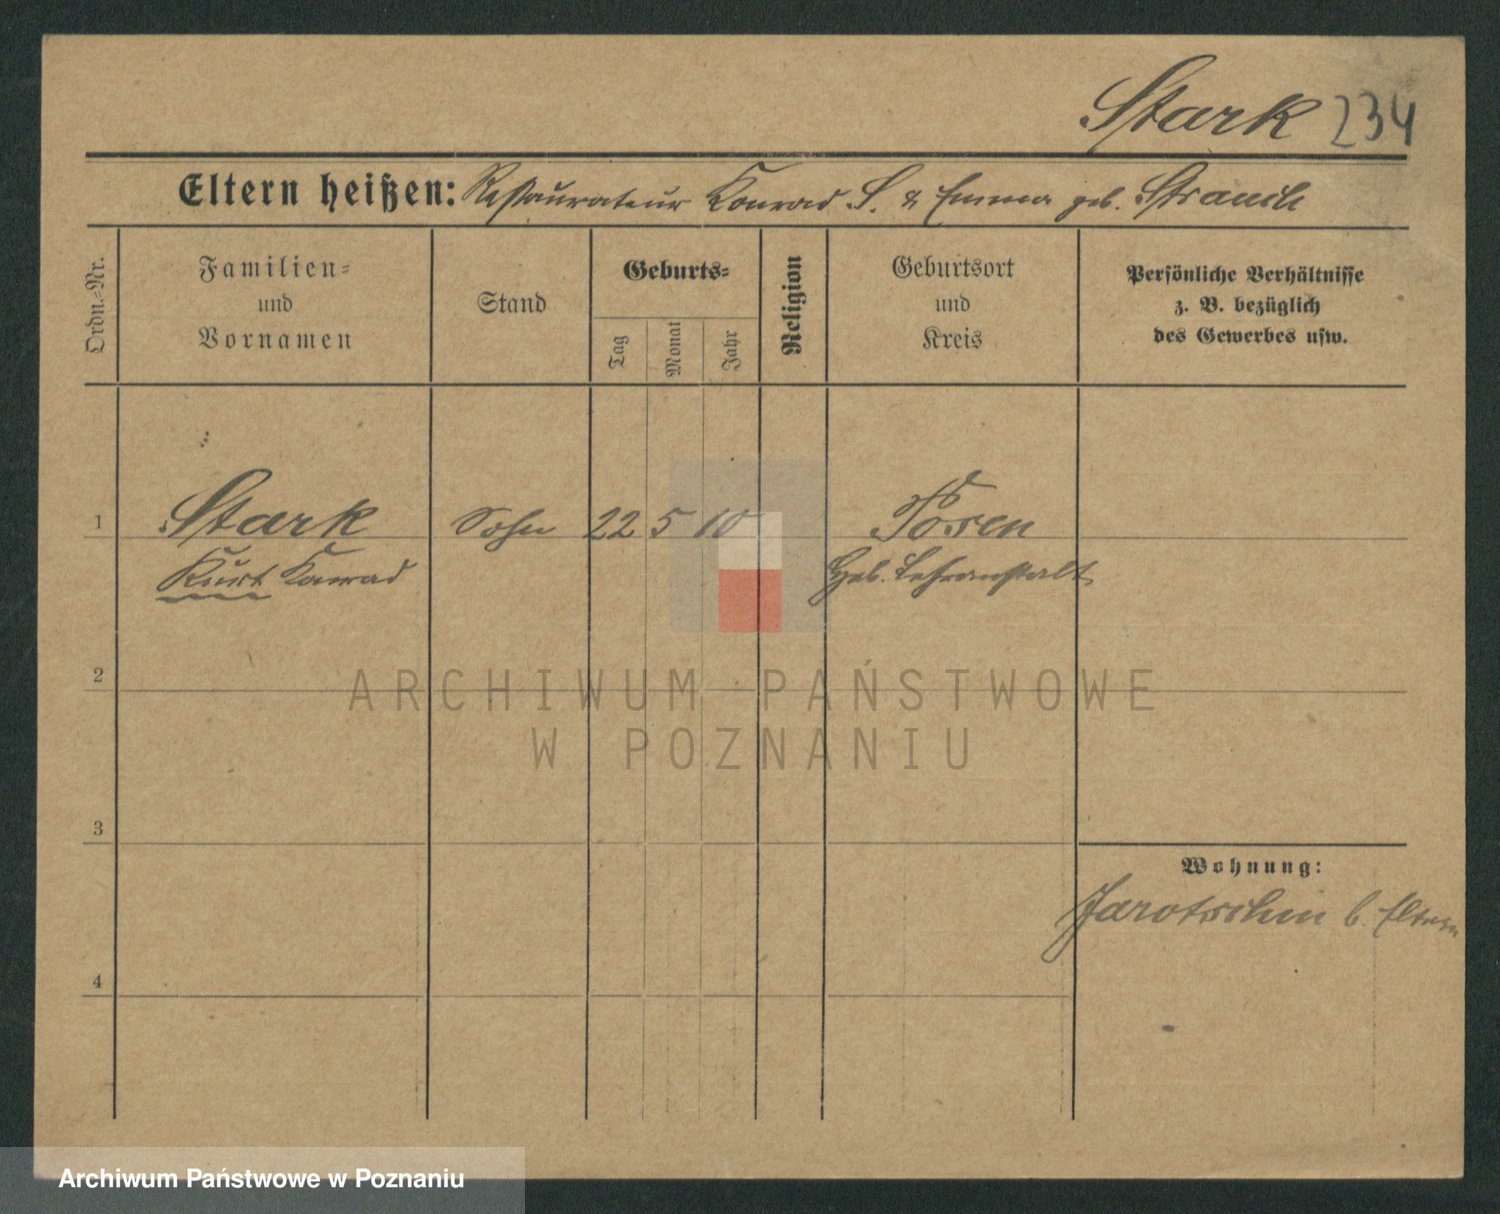 Stark 234
Eltern heißen: Restaurateur Konrad S. & Emma geb.
Ordn.-Nr.
Familien-
und
Vornamen
Stand
Geburts-
Tag
Monat
Jahr
Religion
Geburtsort
und
Kreis
Persönliche Verhältnisse
z. B. bezüglich
des Gewerbes usw.
1 Stark Sohn 22 5 10 Posen
Kurt Konrad Heb. Lehranstalt
2
ARCHIWUM PAŃSTWOWE
W POZNANIU
3
Wohnung:
Jarotschin b. Eltern
4
Archiwum Państwowe w Poznaniu